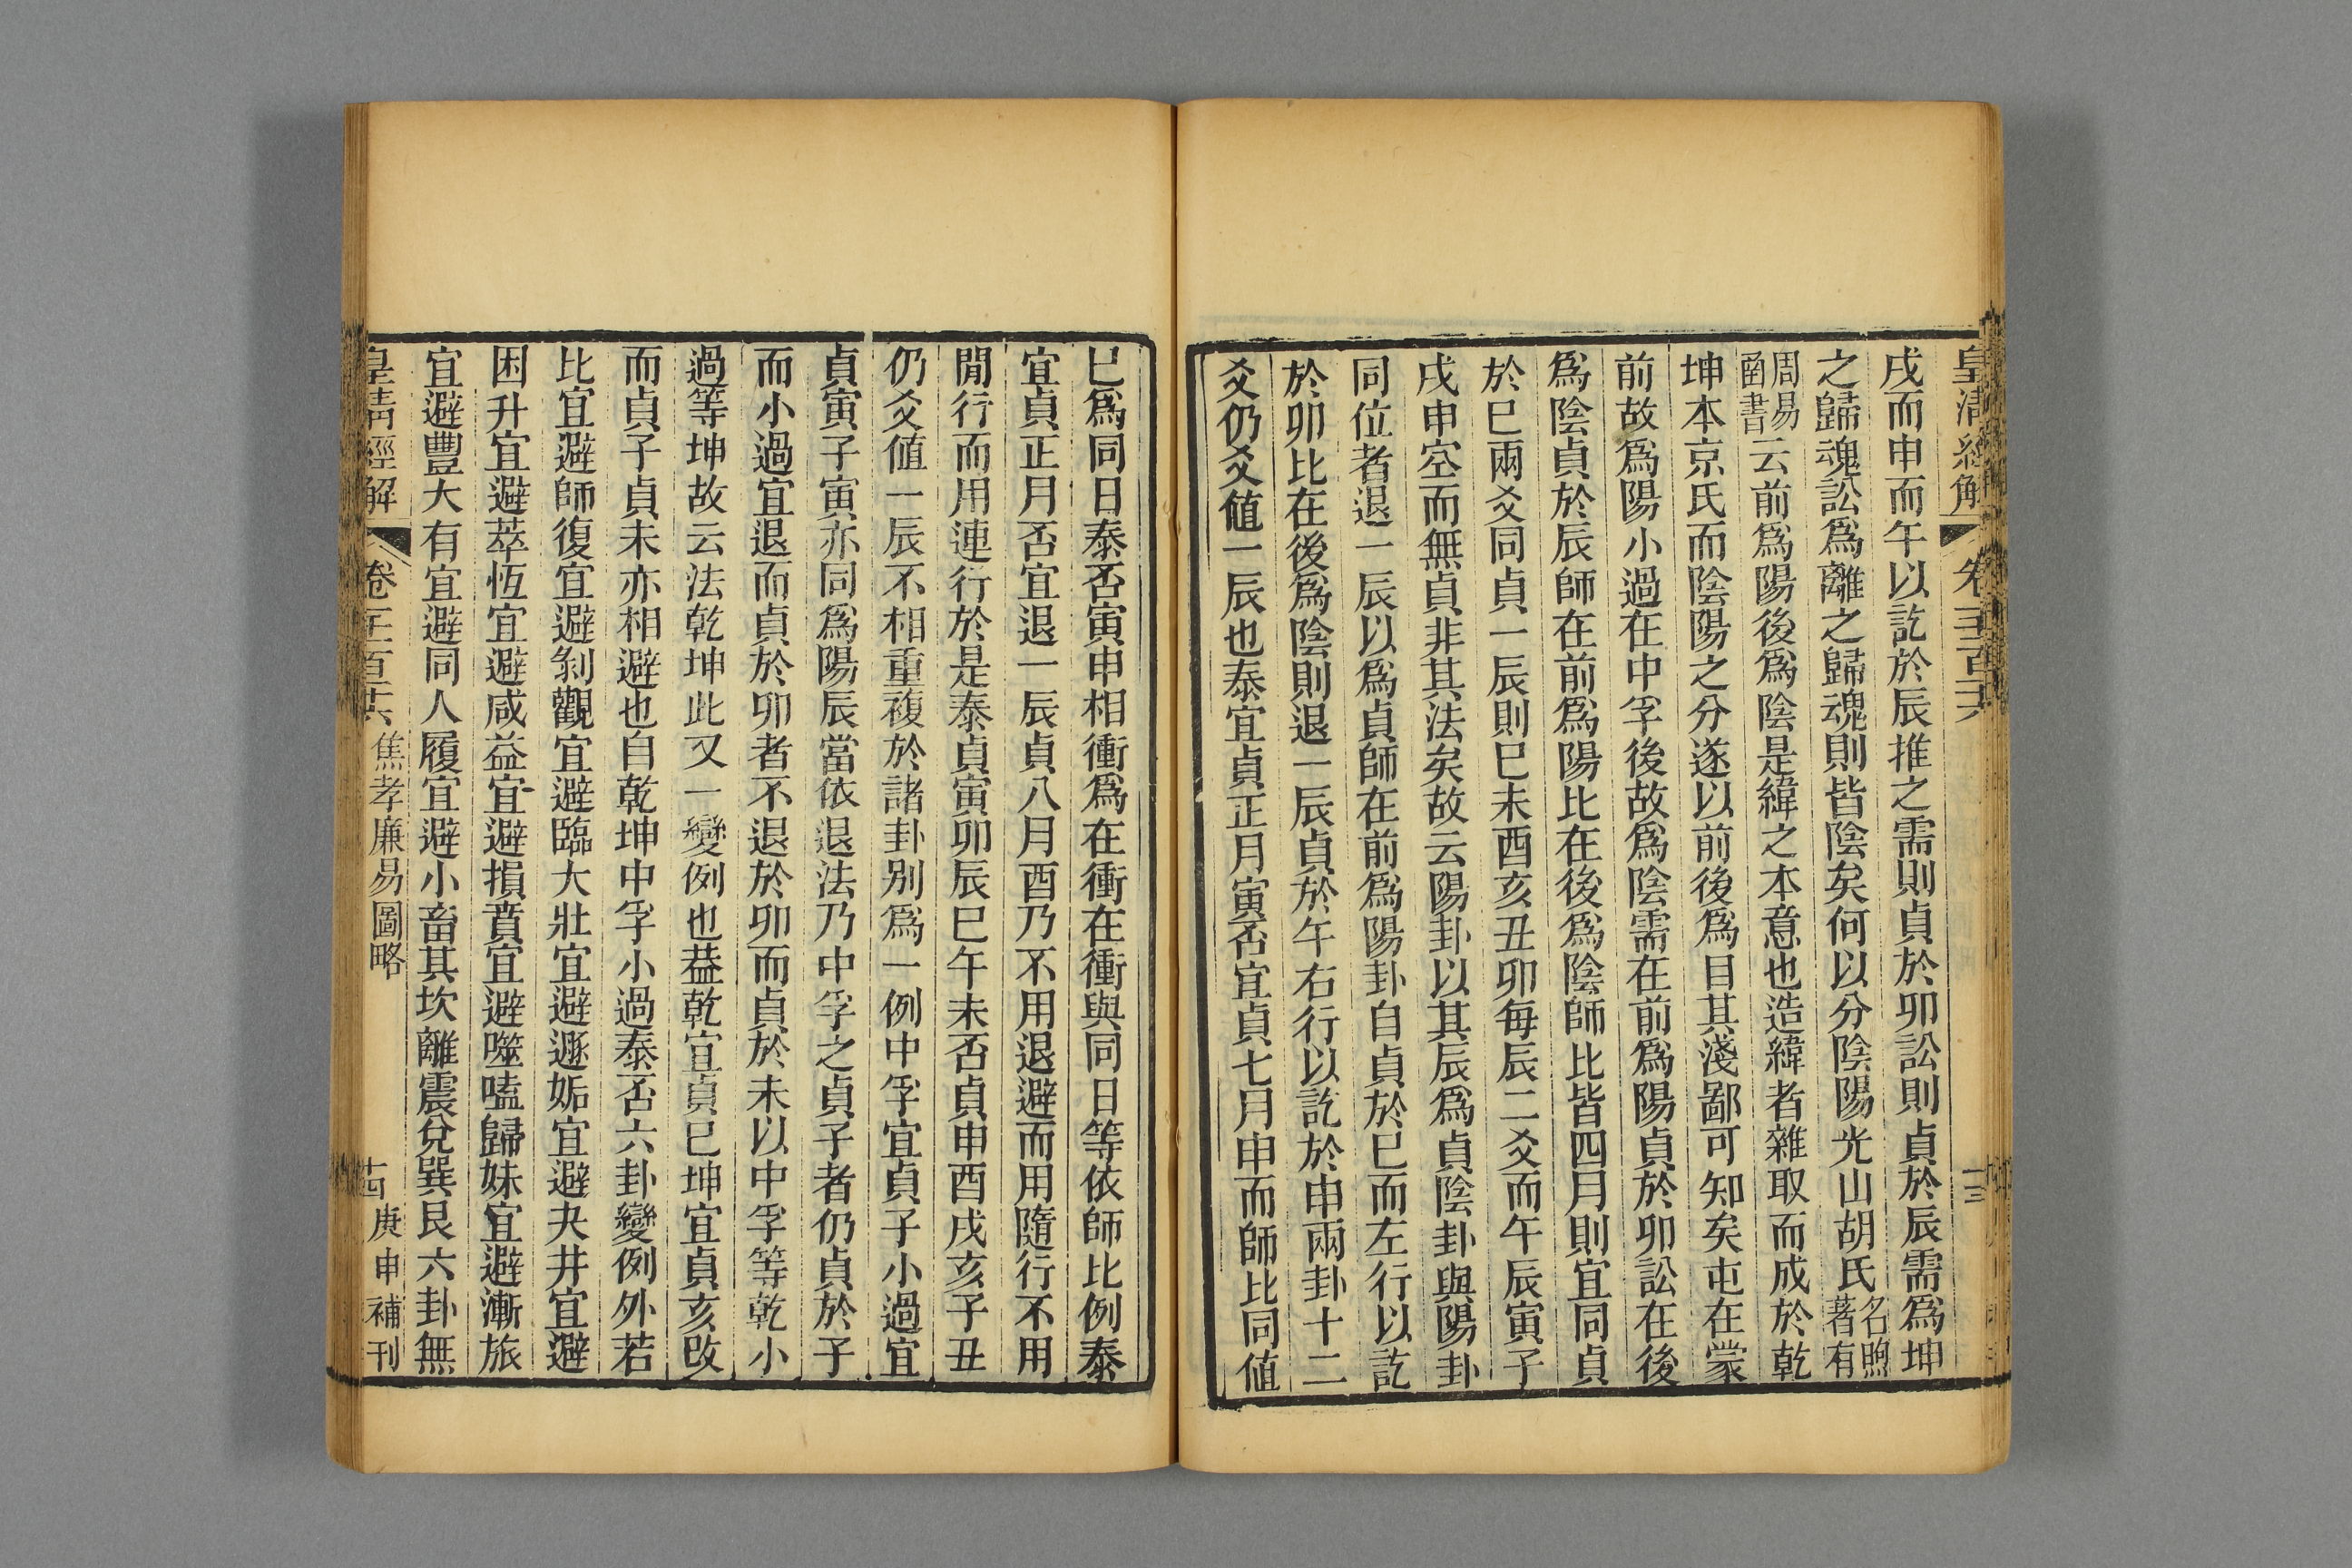 皇淸經解
戌而申而午以訖於辰推之需則貞於卯訟則貞於辰需爲坤
之歸魂訟爲離之歸魂則皆陰矣何以分陰陽光山胡氏名煦著有
周易函書云前爲陽後爲陰是緯之本意也造緯者雜取而成於乾
坤本京氏而陰陽之分遂以前後爲目其淺鄙可知矣屯在蒙
前故爲陽小過在中孚後故爲陰需在前爲陽貞於卯訟在後
爲陰貞於辰師在前爲陽比在後爲陰師比皆四月則宜同貞
於巳兩爻同貞一辰則巳未酉亥丑卯每辰二爻而午辰寅子
戌申空而無貞非其法矣故云陽卦以其辰爲貞陰卦與陽卦
同位者退一辰以爲貞師在前爲陽卦自貞於巳而左行以訖
於卯比在後爲陰則退一辰貞於午右行以訖於申兩卦十二
爻仍爻値一辰也泰宜貞正月寅否宜貞七月申而師比同値
巳爲同日泰否寅申相衝爲在衝在衝與同日等依師比例泰
宜貞正月否宜退一辰貞八月酉乃不用退避而用隨行不用
閒行而用連行於是泰貞寅卯辰巳午未否貞申酉戌亥子丑
仍爻値一辰不相重複於諸卦別爲一例中孚宜貞子小過宜
貞寅子寅亦同爲陽辰當依退法乃中孚之貞子者仍貞於子
而小過宜退而貞於卯者不退於卯而貞於未以中孚等乾小
過等坤故云法乾坤此又一變例也葢乾宜貞巳坤宜貞亥改
而貞子貞未亦相避也自乾坤中孚小過泰否六卦變例外若
比宜避師復宜避剝觀宜避臨大壯宜避遯姤宜避夬井宜避
困升宜避萃恆宜避咸益宜避損賁宜避噬嗑歸妹宜避漸旅
宜避豐大有宜避同人履宜避小畜其坎離震兌巽艮六卦無
皇淸經解 卷 焦孝廉易圖略 庚申補刊